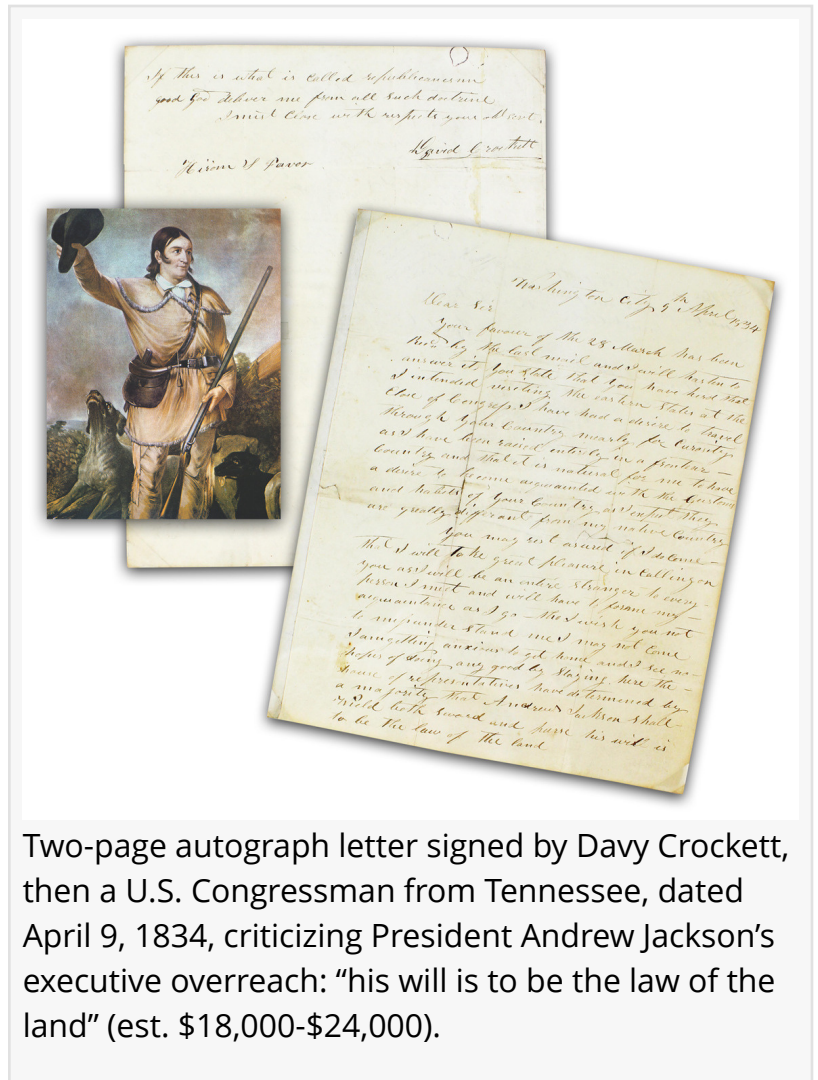 If this is what is called republicanism
good God deliver me from all such doctrine
I must close with respects your obt svt.
David Crockett
Hiram S Favor
Washington City 9th April 1834
Dear Sir
Your favour of the 28 March has been
Recd by the last mail and I will hasten to
answer it you state that you have herd that
I intended visiting the eastern states at the
close of Congress I have had a desire to travel
through your Country mearly for curiosity
as I have been raised entirely in a frontear
Country and that it is natural for me to have
a desire to become acquainted with the Customs
and habits of your Country as I expect they
are greatly different from my native Country
You may rest asured if I do come
that I will take great pleasure in calling on
you as I will be an entire stranger to every
person I meet and will have to forme my
acquaintance as I go tho I wish you not
to misunderstand me I may not come
I am getting anxious to get home and I see no
hopes of doing any good by staying here the
house of representatives have determened by
a majority that Andrew Jackson shall
wield both sword and purse his will is
to be the law of the land
Two-page autograph letter signed by Davy Crockett,
then a U.S. Congressman from Tennessee, dated
April 9, 1834, criticizing President Andrew Jackson’s
executive overreach: “his will is to be the law of the
land” (est. $18,000-$24,000).